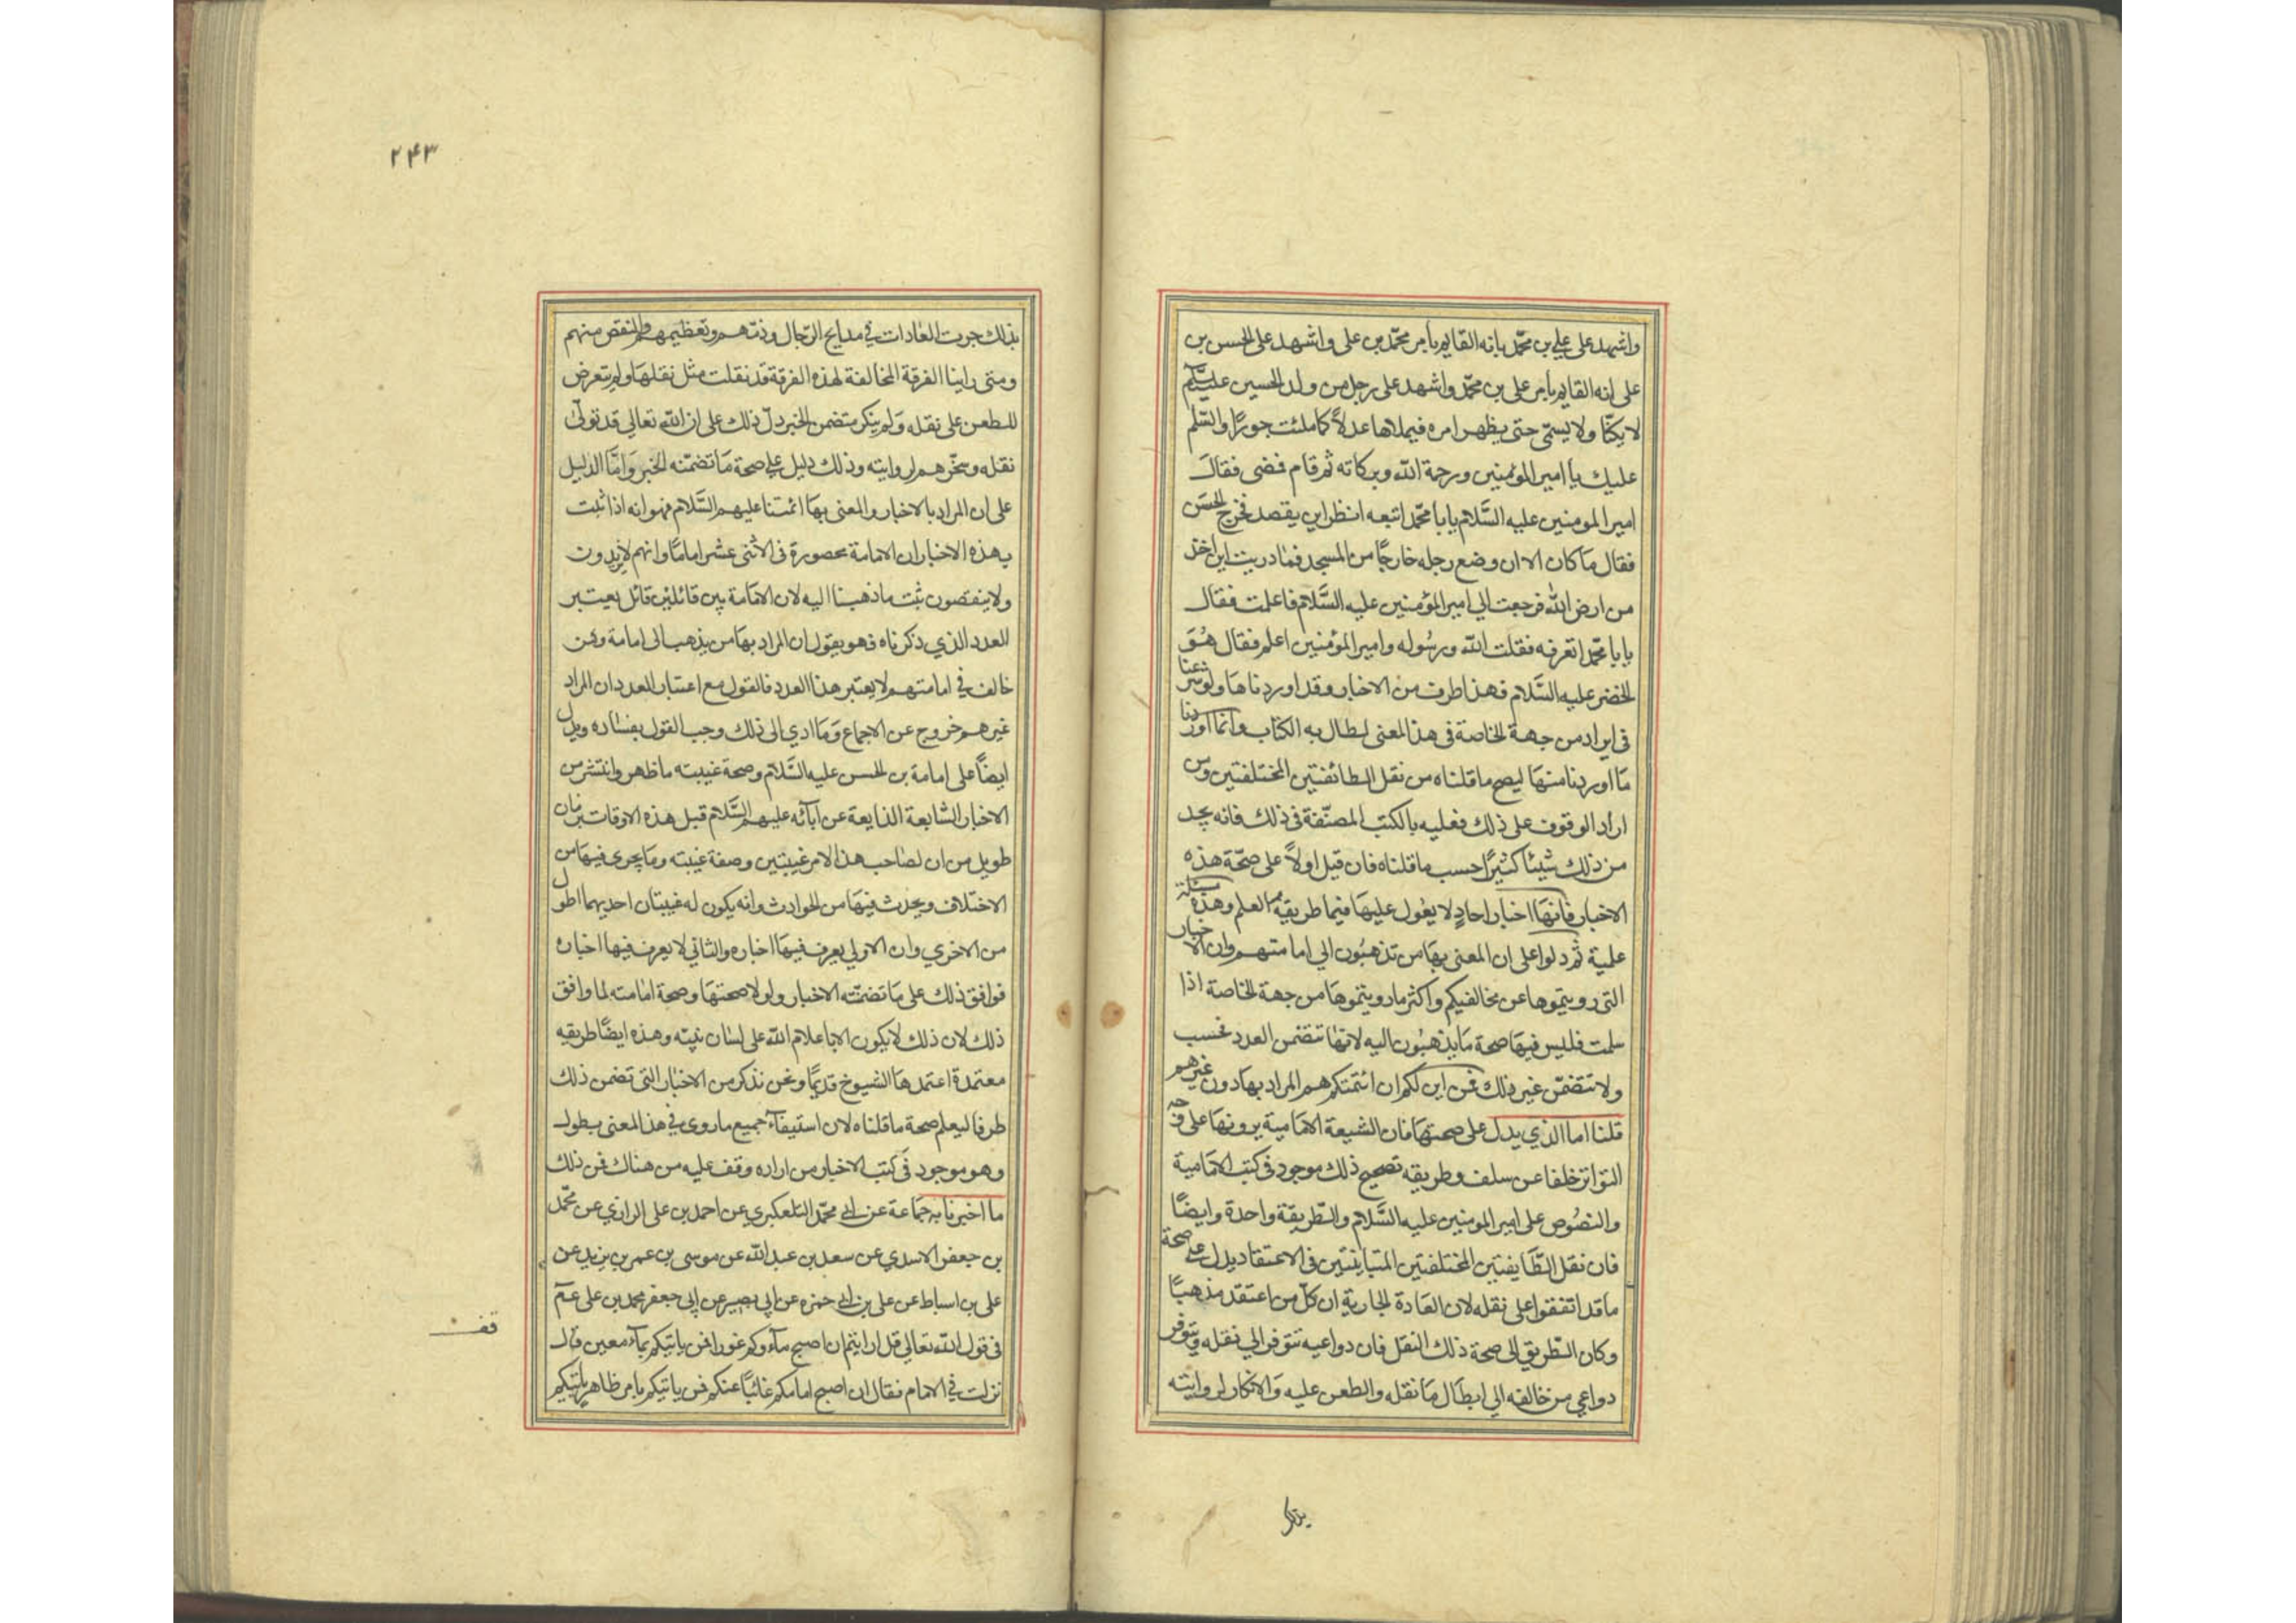 واشهد على علي بن محمّد بانه القايم بأمر محمّد بن على واشهد على الحسن بن
على انه القايم بأمر على بن محمّد واشهد على رجل من ولد الحسين عليه السّلم
لا يكنّا ولا يسمّى حتى يظهر امره فيملاها عدلاً كما ملئت جورًا والسّلم
عليك يا امير المؤمنين ورحمة الله وبركاته ثم قام فمضى فقال
امير المومنين عليه السَّلام يابا محمّد اتبعه انظر اين يقصد فخرج الحسَن
فقال مَا كان الا ان وضع رجله خارجًا من المسجد فمٰا دريت اين اخذ
من ارض الله فرجعت الي امير المؤمنين عليه السَّلام فاعلمت فقال
يابا محمّد اتعرفه فقلت الله ورسُوله وامير المؤمنين اعلم فقال هُوَ
الخضر عليه السَّلام فهذا طرف من الاخبار وقد اوردناهَا ولو شرعنا
فى ايراد من جهة الخاصة فى هذا المعنى لطال به الكتاب وانما اوردنا
مَا اوردنا منهَا ليصح ما قلناه من نقل الطائفتين المختلفتين ومن
اراد الوقوف على ذلك فعليه بالكتب المصنّفة فى ذلك فانه يجد
من ذلك شيئا كثيرًا حسب ما قلناه فان قيل اولاً على صحّة هذه
الاخبار فانهَا اخبار احادٍ لا يعُول عليهَا فيما طريقه العلم وهذه مسئلة
علمية ثم دلوا على ان المعنى بهَا من تذهبُون الي امامتهم وان الاخبار
التى رويتموها عن مخالفيكم واكثر ما رويتموهَا من جهة الخاصة اذا
سلمت فليس فيهَا صحة مَا يذهبُون اليه لانهَا تتضمن العدد فحسب
ولا تتضمّن غير ذلك فمن اين لكم ان ائمتكم هم المراد بها دون غيرهم
قلنا اما الذي يدل على صحتهَا فان الشيعة الامَامية يرونهَا على وجه
التواتر خلفا عن سلف وطريقه تصحيح ذلك موجود فى كتب الامَامية
والنصُوص على امير المومنين عليه السَّلام والطّريقة واحدة وايضًا
فان نقل الطَّايفتين المختلفتين المتباينتين فى الاعتقاد يدل على صحة
ما قد اتفقوا على نقله لان العَادة الجارية ان كلّ من اعتقد مذهبًا
وكان الطّريق الى صحة ذلك النقل فان دواعيه تتوفر الي نقله ويتوفر
دواعي من خالفه الي ابطَال مَا نقله والطعن عليه وَالانكار لروايته
بذلك
٢۴٣
بذلك جرت العَادات في مدايح الرّجال وذمّهم وتعظيمهم والنقص منهم
ومتى راينا الفرقة المخالفة لهذه الفرقة قد نقلت مثل نقلهَا ولم يتعرض
للطعن على نقله وَلم ينكر متضمن الخبر دلّ ذلك على ان الله تعالي قد تولّى
نقله وسخّرهم لروايته وذلك دليل على صحة مَا تضمّنه الخبر وَامَّا الدليل
على ان المراد بالاخبار والمعنى بهَا ائمتنا عليهم السَّلام فهو انه اذا ثبت
بهذه الاخبار ان الامَامة محصورة فى الاثنى عشر امامًا وانهم لا يزيدون
ولا ينقصون ثبت ما ذهبنا اليه لان الامَامة بين قائلين قائل يعيتبر
العدد الذي ذكرناه فهو يقول ان المراد بهَا من يذهب الى امامة ومن
خالف في امامتهم لا يعتبر هذا العدد فالقول مع اعتبار العدد ان المراد
غيرهم خروج عن الاجماع وَمَا ادي الى ذلك وجب القول بفسٰاده ويدل
ايضاً على امامة بن الحسن عليه السَّلام وصحة غيبته ما ظهر وانتشر من
الاخبار الشايعة الذايعة عن آبآئه عليهم السَّلام قبل هذه الاوقات بزمان
طويل من ان لصَاحب هذا الامر غيبتين وصفة غيبته ومَا يجرى فيهَا من
الاختلاف ويحدث فيهَا من الحوادث وانه يكون له غيبتان احديهما اطول
من الاخري وان الاولي يعرف فيهَا اخباره والثاني لا يعرف فيها اخباره
فوافق ذلك على مَا تضمنّته الاخبار ولولا صحتهَا وصحة امٰامته لما وافق
ذلك لان ذلك لا يكون الا باعلام الله على لسٰان نبيّه وهذه ايضًا طريقه
معتمدة اعتمدهَا الشيوخ قديمًا ونحن نذكر من الاخبار التى تضمن ذلك
طرفا ليعلم صحة ما قلناه لان استيفآء جميع ما روى في هذا المعنى يطول
وهو موجود فى كتب الاخبار من اراده وقف عليه من هناك فمن ذلك
ما اخبرنا به جمَاعة عن ابي محمّد التلعكبري عن احمد بن على الرازي عن محمّد
بن جعفر الاسدي عن سعد بن عبد الله عن موسى بن عمر بن يزيد عن
على بن اسباط عن على بن ابي حمزه عن ابي بصير عن ابي جعفر محمد بن على عم
فى قول الله تعالي قل ارايتم ان اصبح مآؤكم غورا فمن ياتيكم بمآء معين قال
نزلت في الامام فقال ان اصبح امامكم غائبًا عنكم فمن ياتيكم بامر ظاهر ياتيكم
قف